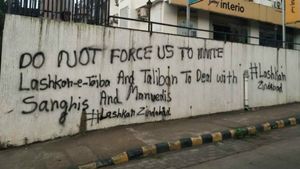 interio
DO NOT FORCE US TO INVITE
Lashkar-e-Taiba And Taliban To Deal with
Sanghis And Manuvedis
#Lashkar Zindabad
#Lashkar
Zindabad